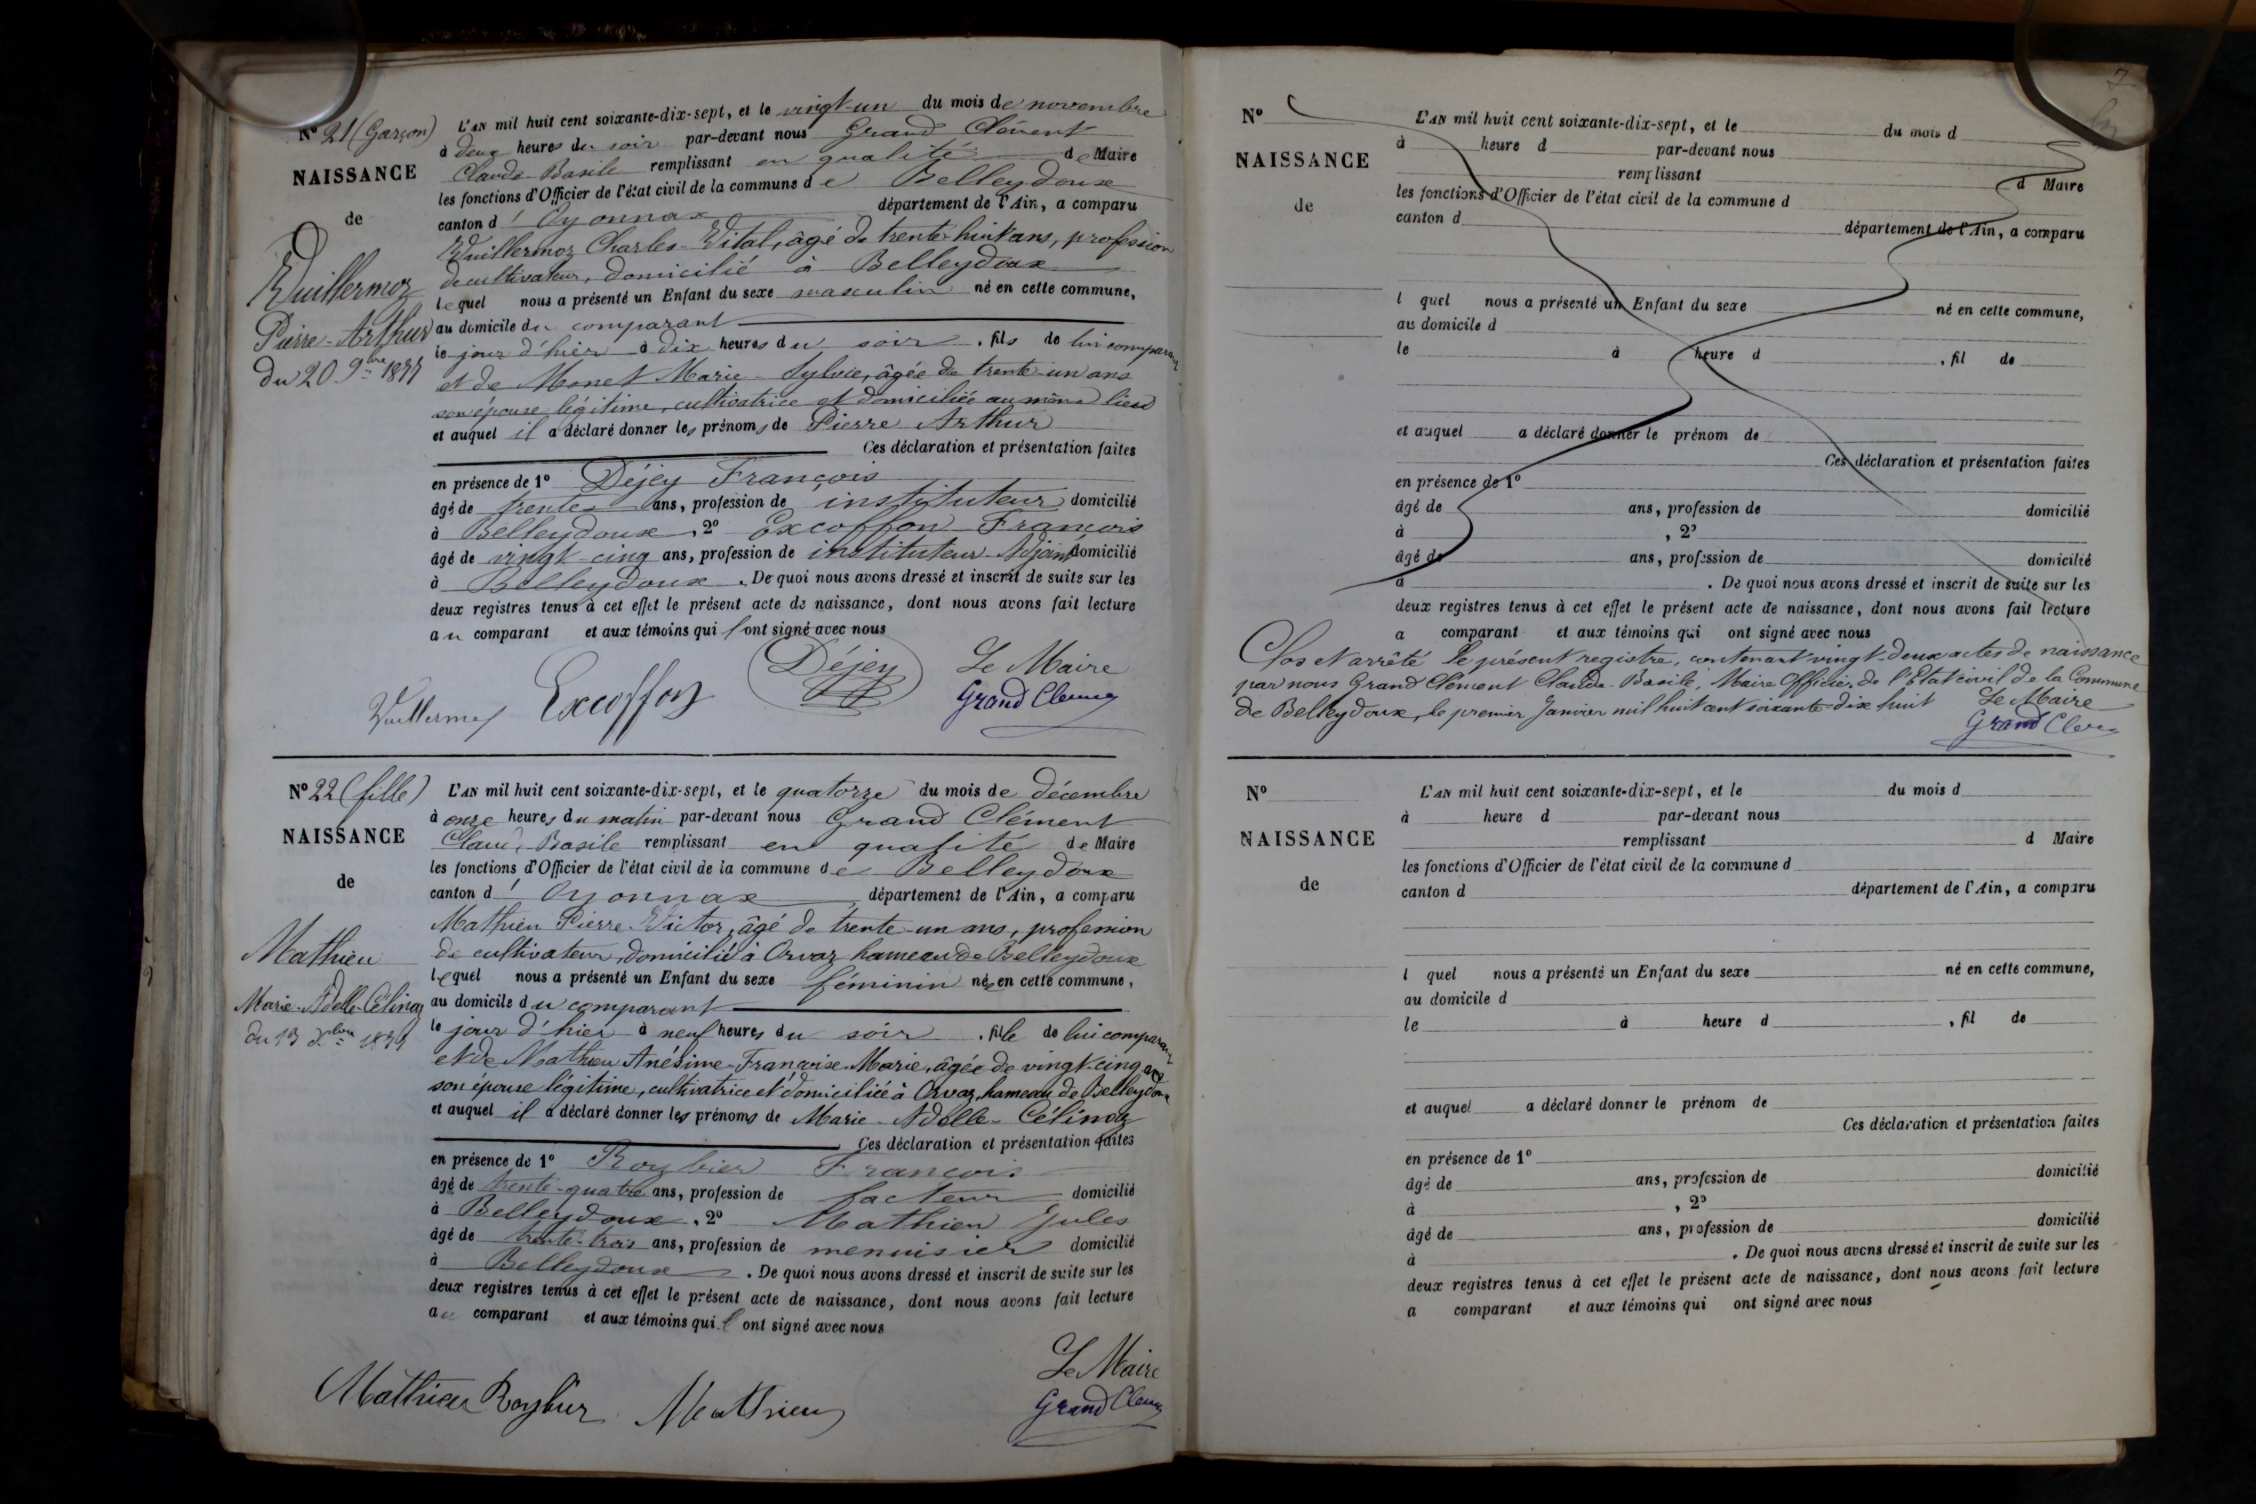 Nº 21 (Garçon)
NAISSANCE
de
Vuillermoz
Pierre-Arthur
du 20 9bre 1877
L'AN mil huit cent soixante-dix-sept, et le vingt-un du mois de novembre
à deux heures du soir par-devant nous Grand Clément
Claude-Basile remplissant en qualité de Maire
les fonctions d'Officier de l'état civil de la commune de Belleydoux
canton d'Oyonnax département de l'Ain, a comparu
Vuillermoz Charles-Vital, âgé de trente-huit ans, profession
de cultivateur, domicilié à Belleydoux
lequel nous a présenté un Enfant du sexe masculin né en cette commune,
au domicile du comparant
le jour d'hier à dix heures du soir, fils de lui comparant
et de Monet Marie-Sylvie, âgée de trente-un ans
son épouse légitime, cultivatrice et domiciliée au même lieu
et auquel il a déclaré donner les prénoms de Pierre Arthur
Ces déclaration et présentation faites
en présence de 1º Déjey François
âgé de trente ans, profession de instituteur domicilié
à Belleydoux, 2º Excoffon François
âgé de vingt-cinq ans, profession de instituteur-Adjoint domicilié
à Belleydoux. De quoi nous avons dressé et inscrit de suite sur les
deux registres tenus à cet effet le présent acte de naissance, dont nous avons fait lecture
au comparant et aux témoins qui l'ont signé avec nous
Vuillermoz Excoffon Déjey Le Maire
Grand Clément
Nº 22 (fille)
NAISSANCE
de
Mathieu
Marie-Adelle-Célina
du 13 Xbre 1877
L'AN mil huit cent soixante-dix-sept, et le quatorze du mois de décembre
à onze heures du matin par-devant nous Grand Clément
Claude-Basile remplissant en qualité de Maire
les fonctions d'Officier de l'état civil de la commune de Belleydoux
canton d'Oyonnax département de l'Ain, a comparu
Mathieu Pierre-Victor, âgé de trente-un ans, profession
de cultivateur, domicilié à Orvaz hameau de Belleydoux
lequel nous a présenté un Enfant du sexe féminin née en cette commune,
au domicile du comparant
le jour d'hier à neuf heures du soir, fille de lui comparant
et de Mathieu Anésime-Françoise-Marie, âgée de vingt-cinq ans
son épouse légitime, cultivatrice et domiciliée à Orvaz, hameau de Belleydoux
et auquel il a déclaré donner les prénoms de Marie-Adelle-Célina
Ces déclaration et présentation faites
en présence de 1º Roybier François
âgé de trente-quatre ans, profession de facteur domicilié
à Belleydoux, 2º Mathieu Jules
âgé de trente-trois ans, profession de menuisier domicilié
à Belleydoux. De quoi nous avons dressé et inscrit de suite sur les
deux registres tenus à cet effet le présent acte de naissance, dont nous avons fait lecture
au comparant et aux témoins qui l'ont signé avec nous
Mathieu Roybier Mathieu Le Maire
Grand Clément
Nº
NAISSANCE
de
L'AN mil huit cent soixante-dix-sept, et le du mois d
à heure d par-devant nous
remplissant d Maire
les fonctions d'Officier de l'état civil de la commune d
canton d département de l'Ain, a comparu
l quel nous a présenté un Enfant du sexe né en cette commune,
au domicile d
le à heure d , fil de
et auquel a déclaré donner le prénom de
Ces déclaration et présentation faites
en présence de 1º
âgé de ans, profession de domicilié
à , 2º
âgé de ans, profession de domicilié
à . De quoi nous avons dressé et inscrit de suite sur les
deux registres tenus à cet effet le présent acte de naissance, dont nous avons fait lecture
a comparant et aux témoins qui ont signé avec nous
Clos et arrêté le présent registre, contenant vingt-deux actes de naissance
par nous Grand Clément Claude-Basile, Maire Officier de l'Etat civil de la Commune
de Belleydoux, le premier Janvier mil huit cent soixante-dix huit Le Maire
Grand Clément
Nº
NAISSANCE
de
L'AN mil huit cent soixante-dix-sept, et le du mois d
à heure d par-devant nous
remplissant d Maire
les fonctions d'Officier de l'état civil de la commune d
canton d département de l'Ain, a comparu
l quel nous a présenté un Enfant du sexe né en cette commune,
au domicile d
le à heure d , fil de
et auquel a déclaré donner le prénom de
Ces déclaration et présentation faites
en présence de 1º
âgé de ans, profession de domicilié
à , 2º
âgé de ans, profession de domicilié
à . De quoi nous avons dressé et inscrit de suite sur les
deux registres tenus à cet effet le présent acte de naissance, dont nous avons fait lecture
a comparant et aux témoins qui ont signé avec nous